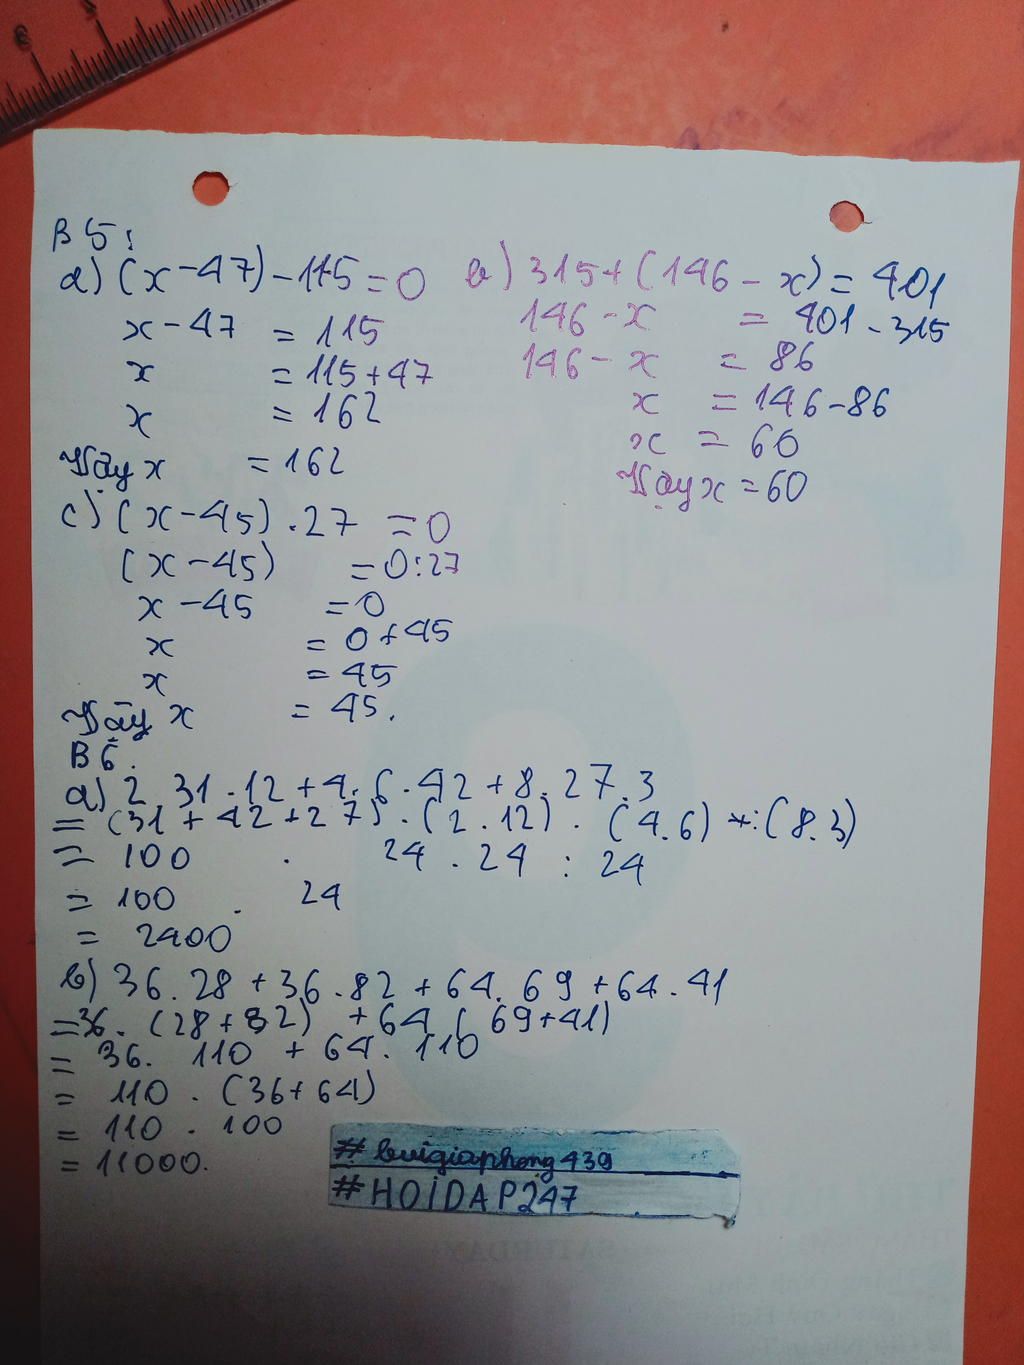 B5:
a) (x-47)-115=0
x-47 = 115
x = 115+47
x = 162
Vậy x = 162
b) 315+(146-x)=401
146-x = 401-315
146-x = 86
x = 146-86
x = 60
Vậy x = 60
c) (x-45).27 = 0
(x-45) = 0:27
x-45 = 0
x = 0+45
x = 45
Vậy x = 45.
B6.
a) 2.31.12+4.6.42+8.27.3
= (31+42+27).(2.12).(4.6):(8.3)
= 100 . 24.24:24
= 100 . 24
= 2400
b) 36.28+36.82+64.69+64.41
=36.(28+82)+64(69+41)
= 36.110+64.110
= 110.(36+64)
= 110.100
= 11000.
#buigiaphong439
#HOIDAP247
SATURDAY